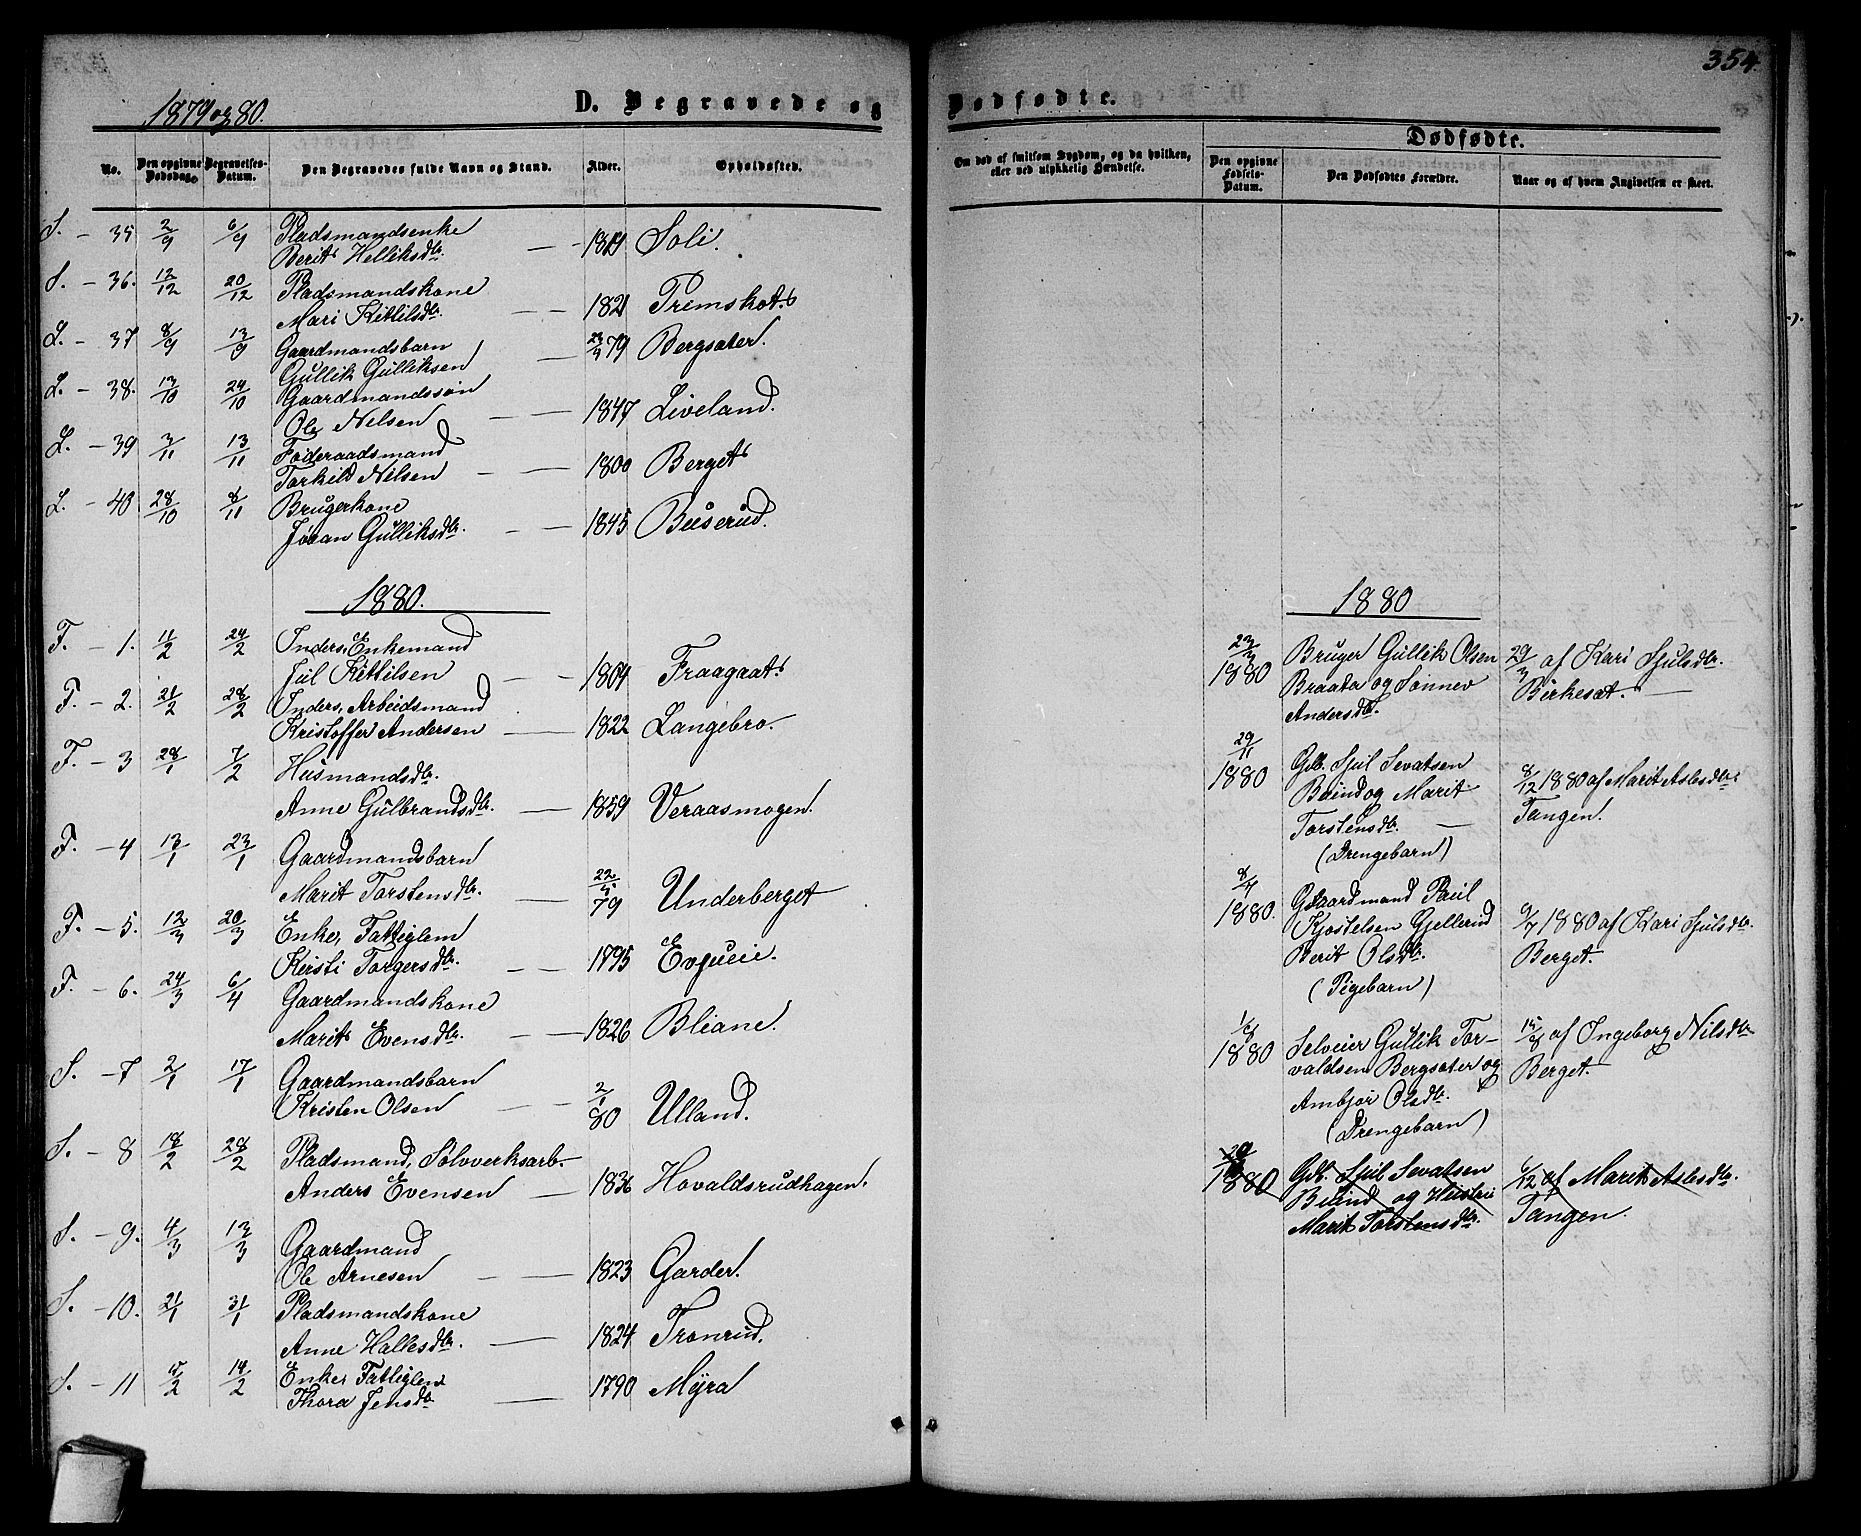 354.
1879 og 80.
D. Begravede og
Dødfødte.
Dødfødte.
No.
Den opgivne Dødsdag.
Begravelses-Datum.
Den Begravedes fulde Navn og Stand.
Alder.
Opholdssted.
Om død af smitsom Sygdom, og da hvilken,
eller ved ulykkelig Hændelse.
Den opgivne Fødsels-Datum.
Den Dødfødtes Forældre.
Naar og af hvem Angivelsen er skeet.
S. - 35 2/9 6/9 Pladsmandsenke
Berit Helliksdtr. - - Soli.
S. - 36. 12/12 20/12 Pladsmandskone
Mari Kittilsdtr. - - 1821 Premskot
L. - 37 8/9 13/9 Gaardmandsbarn
Gullik Gulliksen - 79 Bergsater.
L. - 38. 13/10 24/10 Gaardmandssøn
Ole Nelsen - - 1847 Liveland.
L. - 39 3/11 13/11 Føderaadsmand
Torkeld Nilsen - - 1800 Berget
L. - 40 28/10 8/11 Brugerkone
Jøran Gulliksdtr. - - 1845 Buserud.
1880.
F. - 1. 11/2 24/2 Inders, Enkemand
Jul Kittilsen - - 1804 Fraagaat
F. - 2. 21/2 28/2 Inders, Arbeidsmand
Kristoffer Andersen - 1822 Langebro.
F. - 3 28/1 7/2 Husmandsdtr.
Anne Gulbrandsdtr. - 1859 Veraasmogen.
F. - 4 13/1 23/1 Gaardmandsbarn
Marit Torstensdtr. - 79 Underberget
F. - 5. 12/3 20/3 Enke, Fattiglem
Kirsti Torgersdtr. - - 1795 Evjueie.
F. - 6. 24/3 6/4 Gaardmandskone
Marit Evensdtr. - - 1826 Bliane.
S. - 7 2/1 17/1 Gaardmandsbarn
Kristen Olsen - - 2/1 80 Ulland.
S. - 8 18/2 28/2 Pladsmand, Sølvverksarb.
Anders Evensen - 1836 Hovaldsrudhagen.
S. - 9. 4/3 13/3 Gaardmand
Ole Arnesen - - 1823 Garder.
S. - 10. 21/1 31/1 Pladsmandskone
Anne Hallesdtr. - 1824 Tronrud.
S. - 11 14/2 Enke, Fattiglem
Thora Jensdtr - 1790 Myra
1880
23/3 1880 Bruger Gullik Olsen
Braata og Sønnev
Andersdtr.
29/3 af Kari Sjulsdtr.
Birkesæt. -
29/11 1880 Gdb. Sjul Sevatsen
Buind og Marit
Torstensdtr. -
(Drengebarn)
8/12 1880 af Marit Aslesdtr
Tangen.
8/7 1880. Gaardmand Paul
Kjostelsen Gjellerud
Berit Olsdtr.
(Pigebarn)
9/7 1880 af Kari Sjulsdtr.
Berget.
1/8 1880 Selveier Gullik Tor-
valdsen Bergsater og
Ambjør Olsdtr.
(Drengebarn)
15/8 af Ingeborg Nilsdtr
Berget.
1880 Gdb. Sjul Sevatsen
Buind og Hustru
Marit Torstensdtr.
af Marit Aslesdtr.
Tangen.